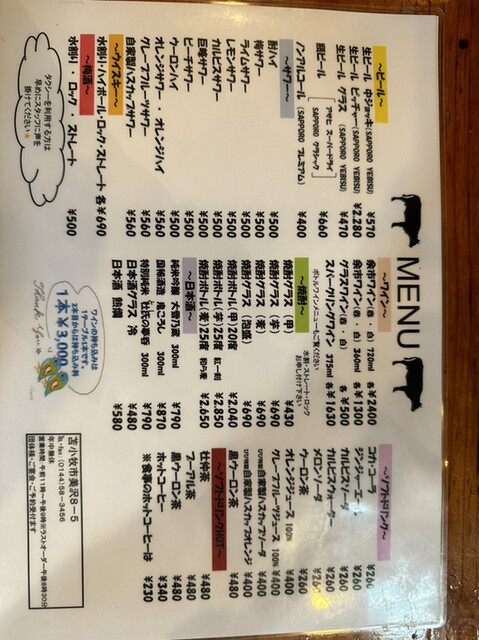 MENU
～ビール～
生ビール 中ジョッキ(SAPPORO YEBISU) ¥570
生ビール ピッチャー(SAPPORO YEBISU) ¥2.280
生ビール グラス (SAPPORO YEBISU) ¥470
瓶ビール [アサヒ スーパードライ SAPPORO クラシック] ¥660
ノンアルコール (SAPPORO プレミアム) ¥400
～サワー～
酎ハイ ¥500
梅サワー ¥500
ライムサワー ¥500
レモンサワー ¥500
カルピスサワー ¥500
巨峰サワー ¥500
ピーチサワー ¥500
ウーロンハイ ¥500
オレンジサワー・オレンジハイ ¥560
グレープフルーツサワー ¥560
自家製ハスカップサワー ¥560
～ウイスキー～
水割り・ハイボール・ロック・ストレート 各¥690
～梅酒～
水割り ・ ロック ・ ストレート ¥500
タクシーを利用する方は
早めにスタッフに声を
掛けてください★
～ワイン～
余市ワイン(赤・白) 720ml 各¥2400
余市ワイン(赤・白) 360ml 各¥1300
グラスワイン(赤・白) 各¥500
スパークリングワイン 375ml 各¥1630
ボトルワインメニューもご覧ください
～焼酎～
水割・ストレート・ロック
お申し付け下さい
焼酎グラス (甲) ¥430
焼酎グラス (麦) ¥690
焼酎グラス (芋) ¥690
焼酎グラス (泡盛) ¥690
焼酎ボトル(甲)20度 ¥2.040
焼酎ボトル(芋)25度 紅一刻 ¥2.850
焼酎ボトル(麦)25度 和ら麦 ¥2.650
～日本酒～
純米吟醸 大雪乃蔵 300ml ¥790
国稀酒造 鬼ころし 300ml ¥870
特別純米 杜氏の夢呑 300ml ¥790
日本酒グラス 冷 ¥480
日本酒 熱燗 ¥580
ワインの持ち込みは
1テーブル1本です。
2本目からは持ち込み料
1本¥3,000
Thank You
～ソフトドリンク～
コカ・コーラ ¥260
ジンジャーエール ¥260
カルピスソーダ ¥260
カルピスウォーター ¥260
メロンソーダ ¥260
ウーロン茶 ¥260
オレンジジュース 100% ¥400
グレープフルーツジュース 100% ¥400
自家製ハスカップソーダ ¥400
自家製ハスカップオレンジ ¥400
黒ウーロン茶 ¥480
～ソフトドリンクHOT～
杜仲茶 ¥480
プーアル茶 ¥480
黒ウーロン茶 ¥480
ホットコーヒー ¥340
※食事のホットコーヒーは ¥230
苫小牧市美沢8－5
Tel・fax:(0144)58-3456
年中無休
営業時間:午前11時～午後9時※ラストオーダー午後8時30分
団体様・ご宴会・ご予約受付ます